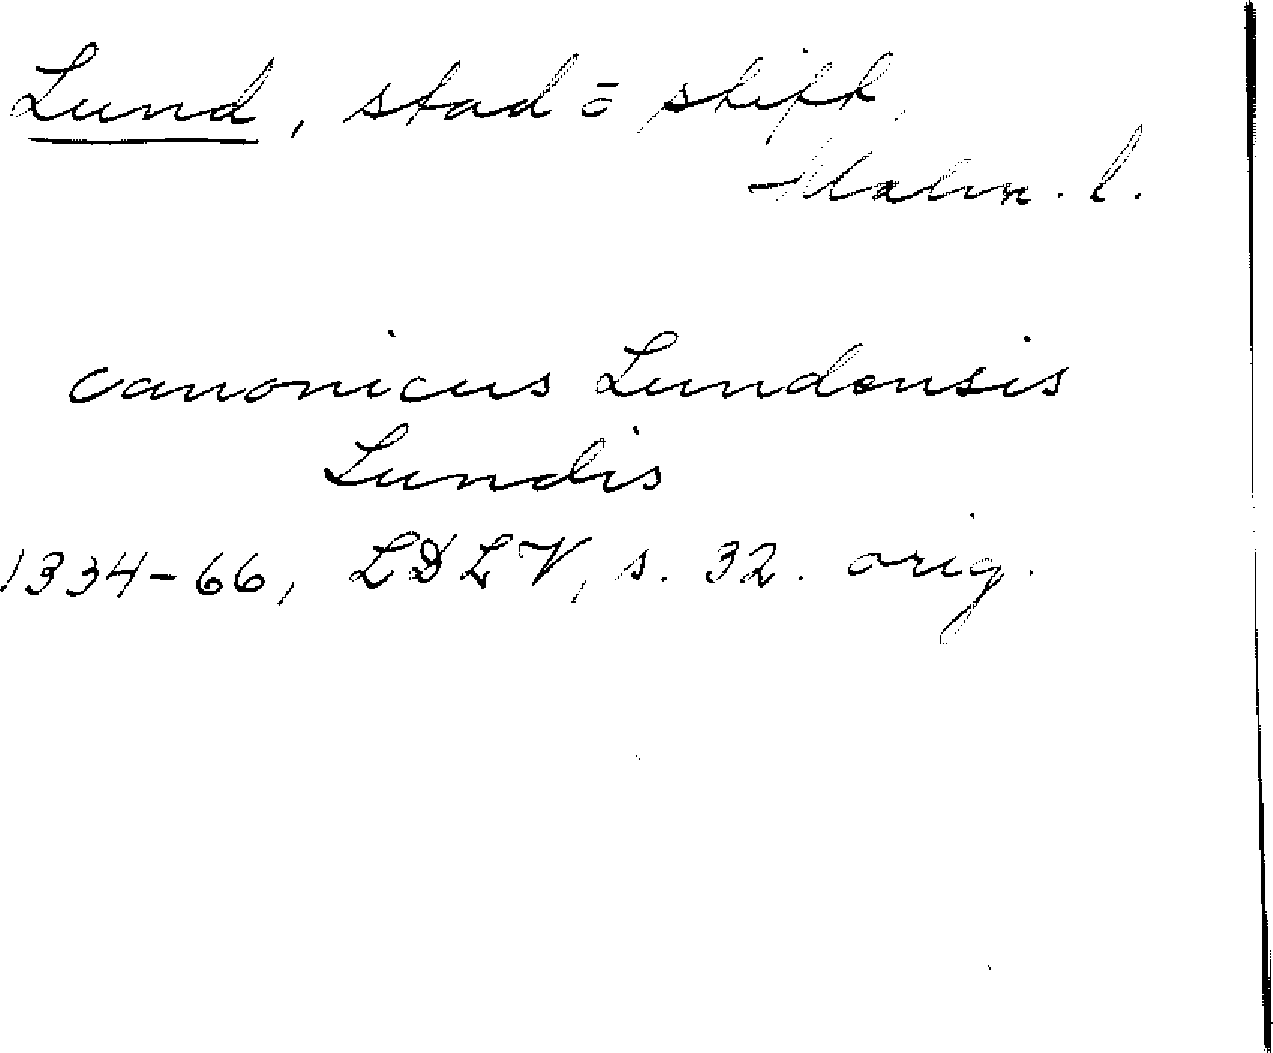 Lund, stad o stift,
Malm. l.
canonicus Lundensis
Lundis
1334-66, LDLV, s. 32. orig.